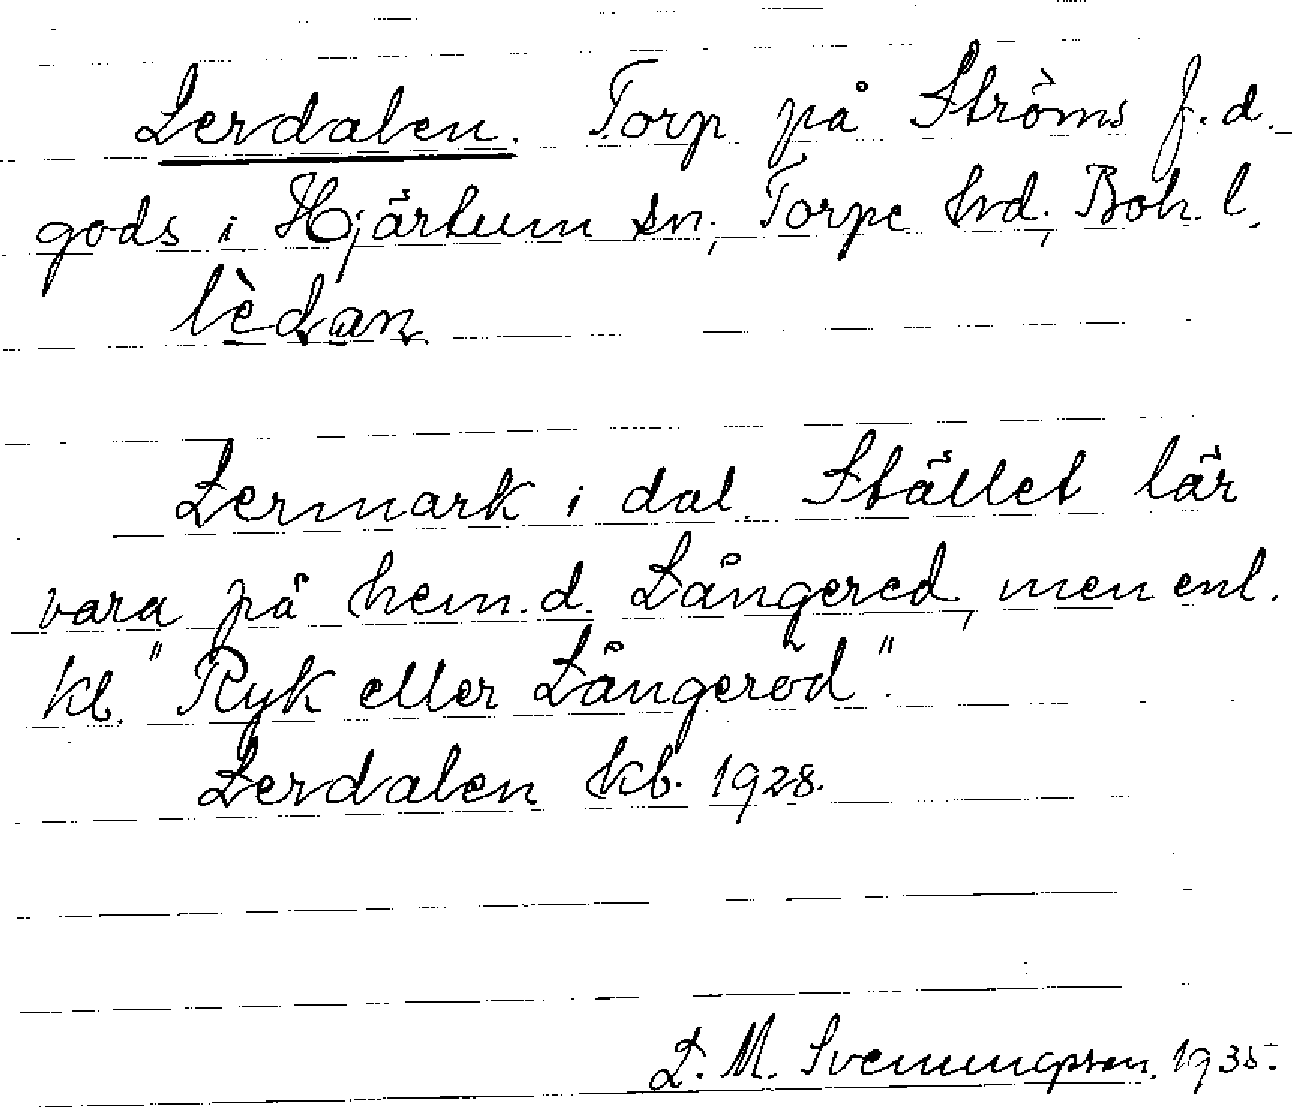 Lerdalen. Torp på Ströms f.d.
gods i Hjärtum sn, Torpe hd, Boh. l.
lèdan
Lermark i dal. Stället lär
vara på hem.d. Långered, men enl.
kb. "Ryk eller Långeröd".
Lerdalen kb. 1928.
D. M. Svenungsson. 1935.